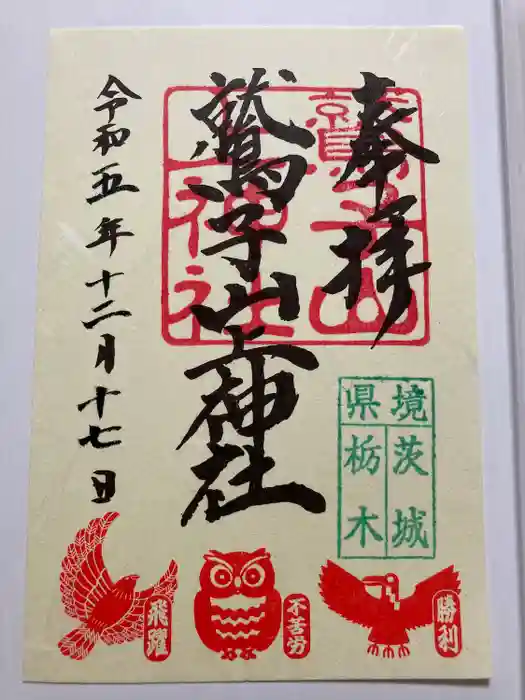 奉拝
鷲子山
上神社
鷲子山上神社
令和五年十二月十七日
境
県
茨城
栃木
飛躍
不苦労
勝利